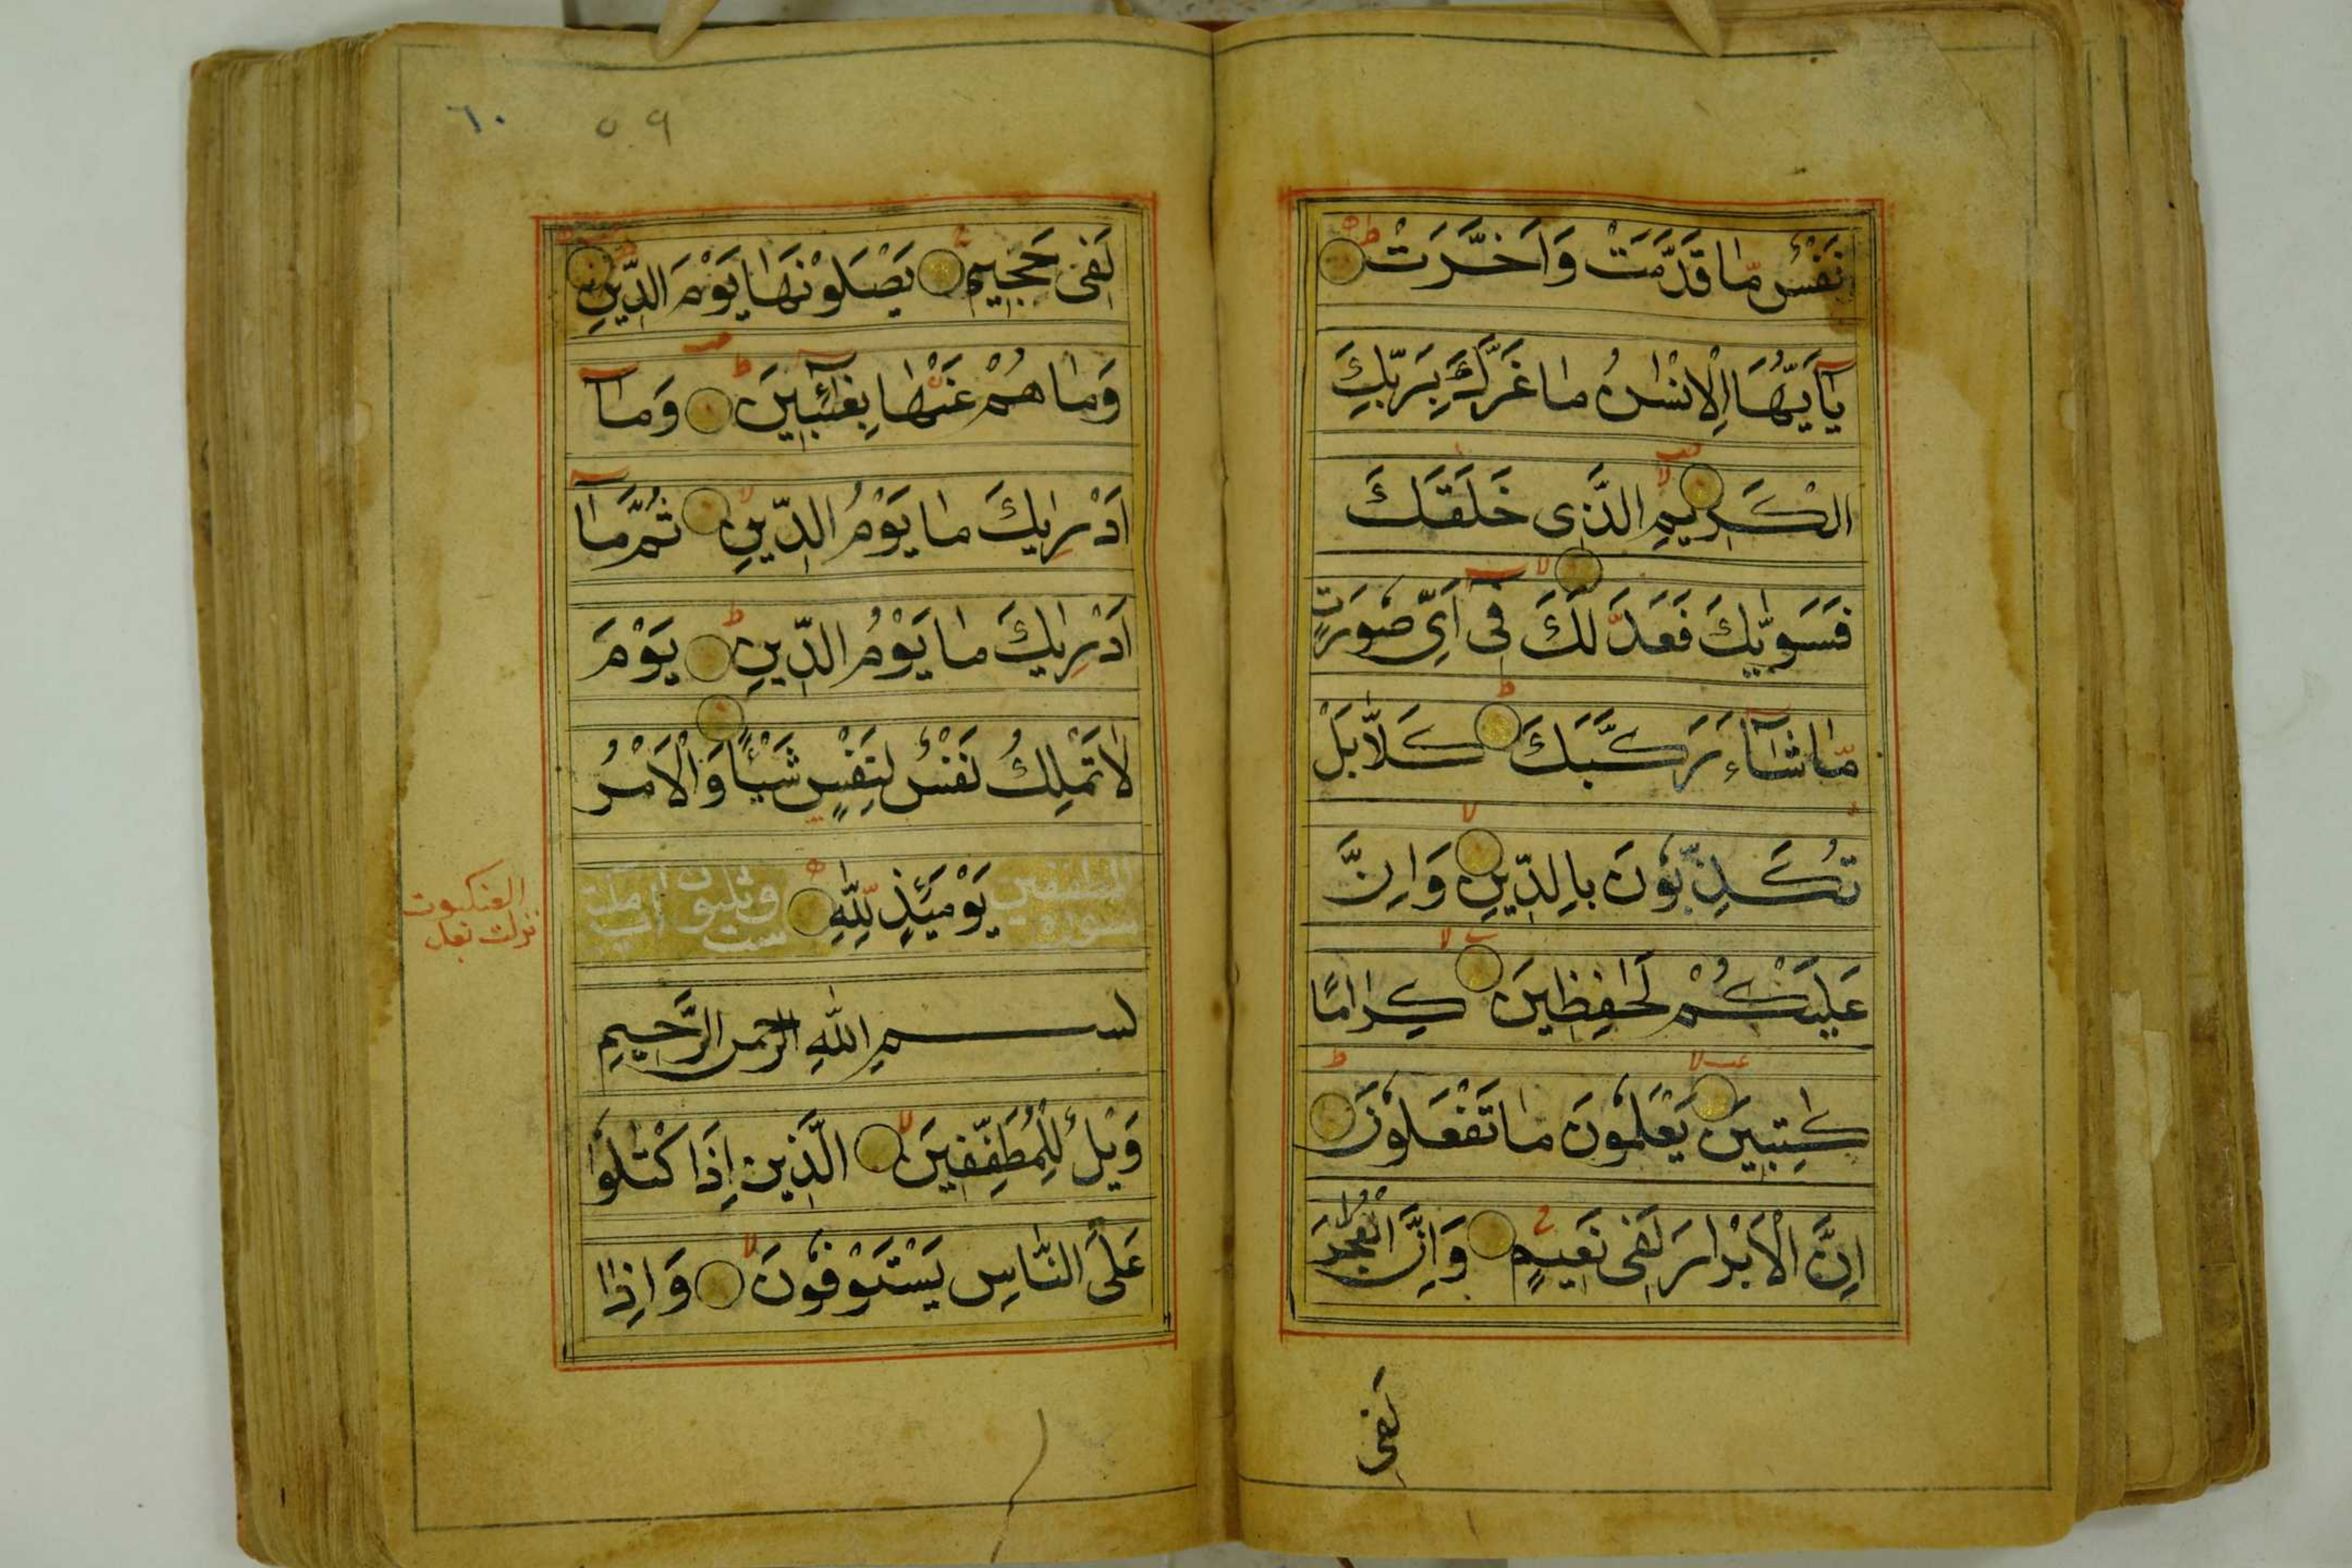 نَفْسٌ مَّا قَدَّمَتْ وَاَخَّرَتْ
يٰٓاَيُّهَا الْاِنْسٰنُ مٰا غَرَّكَ بِرَبِّكَ
الْكَرِيمِ الَّذِى خَلَقَكَ
فَسَوّٰيكَ فَعَدَّلَكَ فِىٓ اَىِّ صُورَتٍ
مّٰا شٰآءَ رَكَّبَكَ كَلّٰا بَلْ
تُكَذِّبُونَ بِالدِّينِ وَاِنَّ
عَلَيْكُمْ لَحٰفِظِينَ كِرٰامًا
كٰتِبِينَ يَعْلَمُونَ مٰا تَفْعَلُونَ
اِنَّ الْاَبْرٰارَ لَفِى نَعِيمٍ وَاِنَّ الْفُجّٰارَ
لَفِى
٦٠ ٥٩
لَفِى جَحِيمٍ يَصْلَوْنَهٰا يَوْمَ الدِّينِ
وَمٰا هُمْ عَنْهٰا بِغٰٓائِبِينَ وَمٰآ
اَدْرٰيكَ مٰا يَوْمُ الدِّينِ ثُمَّ مٰآ
اَدْرٰيكَ مٰا يَوْمُ الدِّينِ يَوْمَ
لٰا تَمْلِكُ نَفْسٌ لِنَفْسٍ شَيْئًا وَالْاَمْرُ
سورة المطففين يَوْمَئِذٍ لِلّٰهِ ست وثلثون آيات
العنكبوت
نزلت بعد
بسم اللّٰهِ الرحمن الرَّحِيمِ
وَيْلٌ لِلْمُطَفِّفِينَ الَّذِينَ اِذَا كْتٰلُوا
عَلَى النّٰاسِ يَسْتَوْفُونَ وَاِذٰا